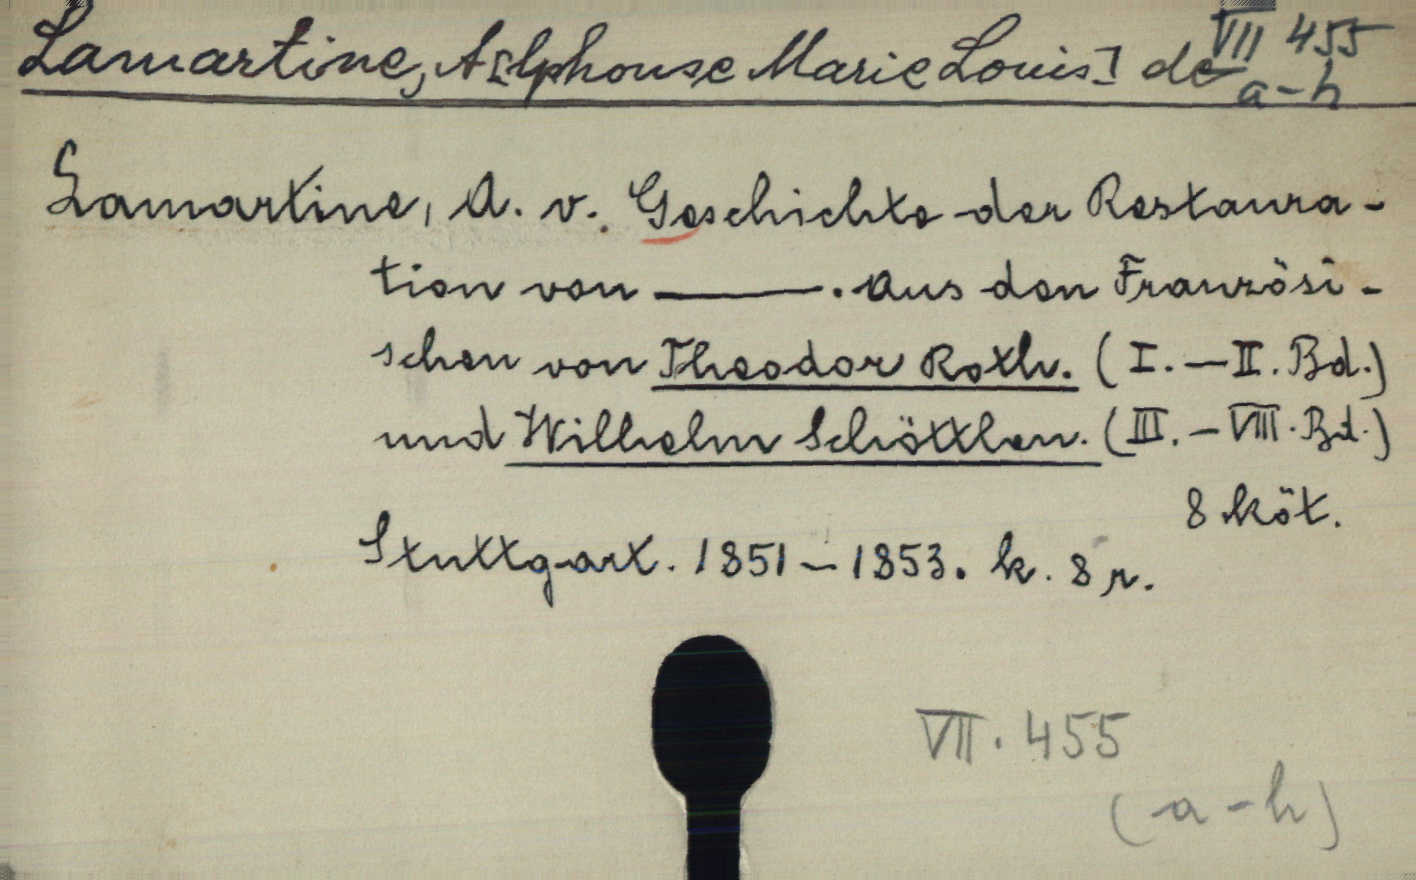 Lamartine, A[lphonse Marie Louis] de VII 455
a-h
Lamartine, A. v. Geschichte der Restaura-
tion von ———. Aus den Französi-
schen von Theodor Roth. (I. — II. Bd.)
und Wilhelm Schöttlen. (III. — VIII. Bd.)
8 köt.
Stuttgart. 1851 — 1853. k. 8 r.
VII. 455
(a-h)